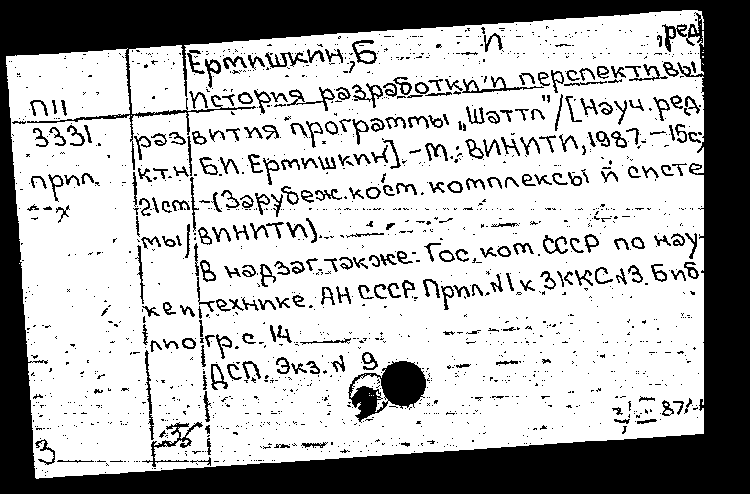 Ермишкин, Б П ,ред
П11 История разработки и перспективы
3331. развития программы „Шаттл"/[Науч.ред.
прил. к.т.н. Б.И.Ермишкин].-М.: ВИНИТИ,1987.-15с,
21см.-(Зарубеж.косм.комплексы и систе
мы/ВИНИТИ).
В надзаг.также: Гос.ком.СССР по нау-
ке и технике. АН СССР. Прил.N1 к ЗККС.N3. Биб-
лиогр.с.14
ДСП. Экз.N 9
87/
З 556